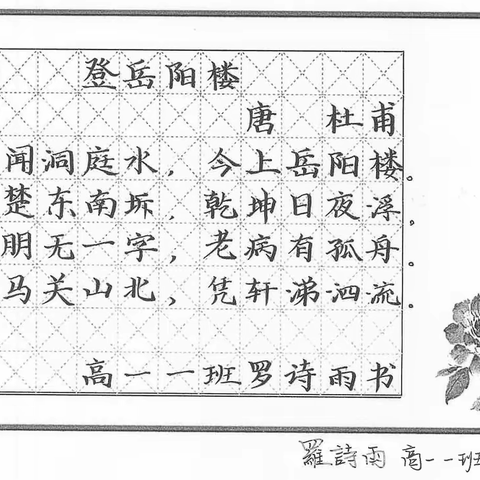 登岳阳楼
唐 杜甫
闻洞庭水，今上岳阳楼。
楚东南坼，乾坤日夜浮，
朋无一字，老病有孤舟。
马关山北，凭轩涕泗流.
高一一班罗诗雨书
羅詩雨 高一一班